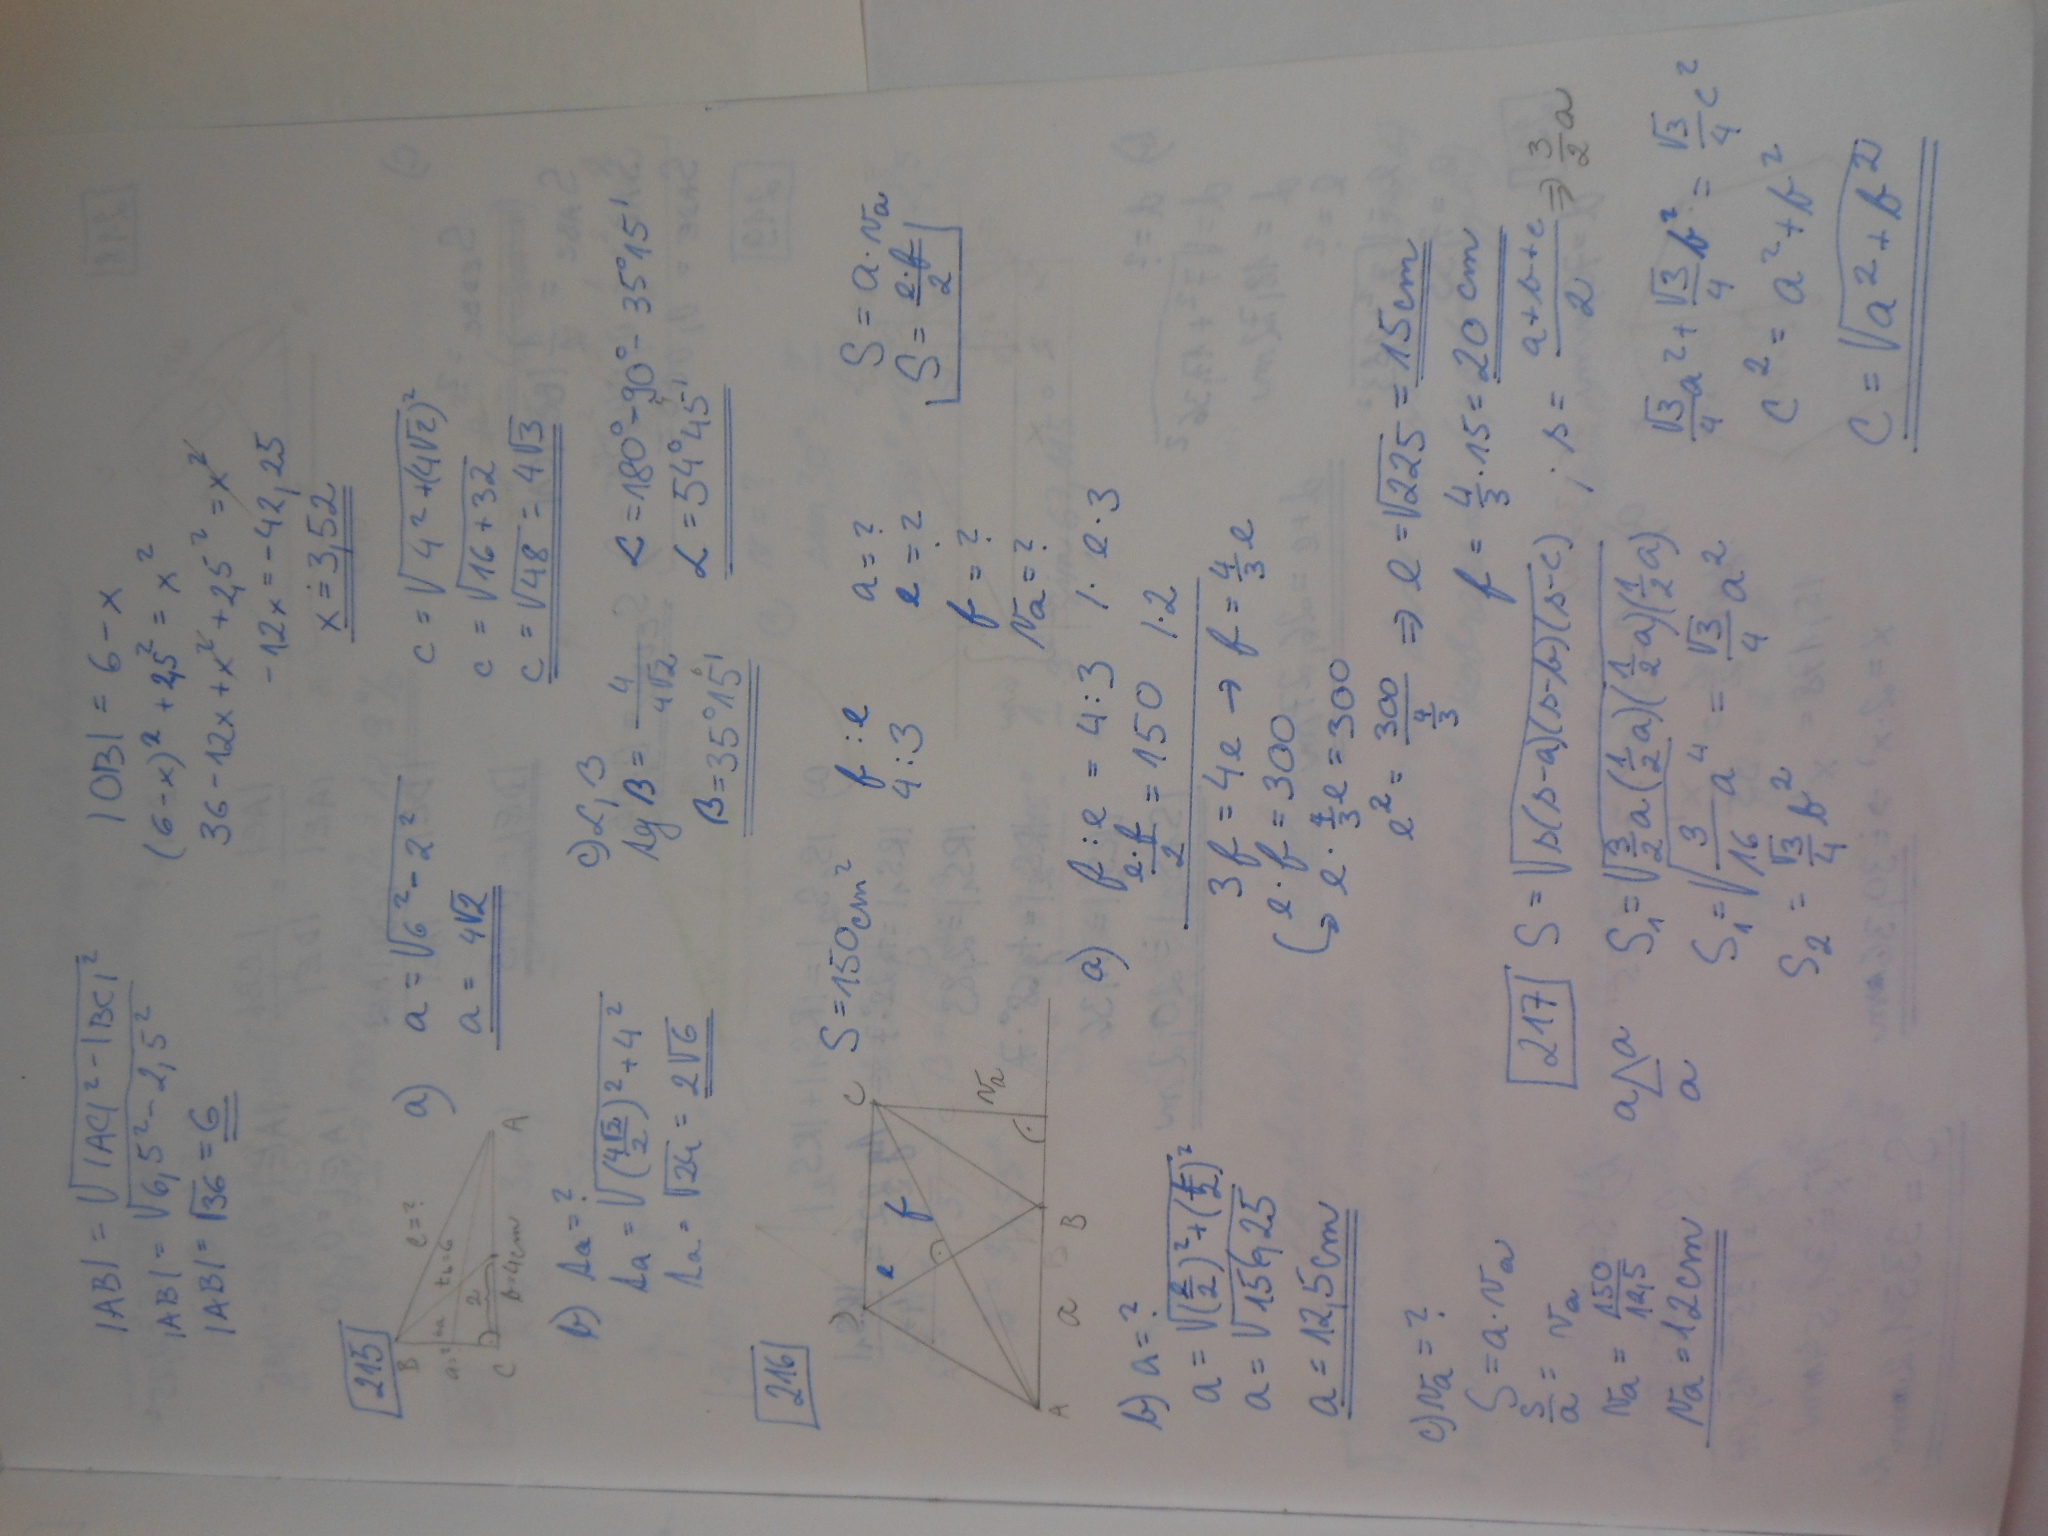 |AB| = √|AC|² - |BC|²
|AB| = √6,5² - 2,5²
|AB| = √36 = 6
|OB| = 6 - x
(6-x)² + 2,5² = x²
36 - 12x + x² + 2,5² = x²
-12x = -42,25
x ≐ 3,52
215
B
c=?
tb=6
ta
a=?
2
C
b=4cm
A
a) a = √6² - 2²
a = 4√2
c = √4² + (4√2)²
c = √16+32
c = √48 = 4√3
b) ta = ?
ta = √(4√2/2)² + 4²
ta = √24 = 2√6
c) α, β
tg β = 4/4√2
β = 35°15'
α = 180° - 90° - 35°15'
α = 54°45'
216
D
C
e
f
va
A
a
B
S = 150cm²
f : e
4 : 3
a = ?
e = ?
f = ?
va = ?
S = a · va
S = e·f/2
a) f : e = 4 : 3 /· e · 3
e·f/2 = 150 /· 2
3f = 4e → f = 4/3 e
e · f = 300
↳ e · 4/3 e = 300
e² = 300/4/3 ⇒ e = √225 = 15cm
f = 4/3 · 15 = 20 cm
b) a = ?
a = √(e/2)² + (f/2)²
a = √156,25
a = 12,5cm
c) va = ?
S = a · va
S/a = va
va = 150/12,5
va = 12cm
217
S = √s(s-a)(s-b)(s-c) ; s = a+b+c/2 ⇒ 3/2 a
a a
a
S₁ = √3/2 a(1/2 a)(1/2 a)(1/2 a)
S₁ = √3/16 a⁴ = √3/4 a²
S₂ = √3/4 b²
√3/4 a² + √3/4 b² = √3/4 c²
c² = a² + b²
c = √a² + b²